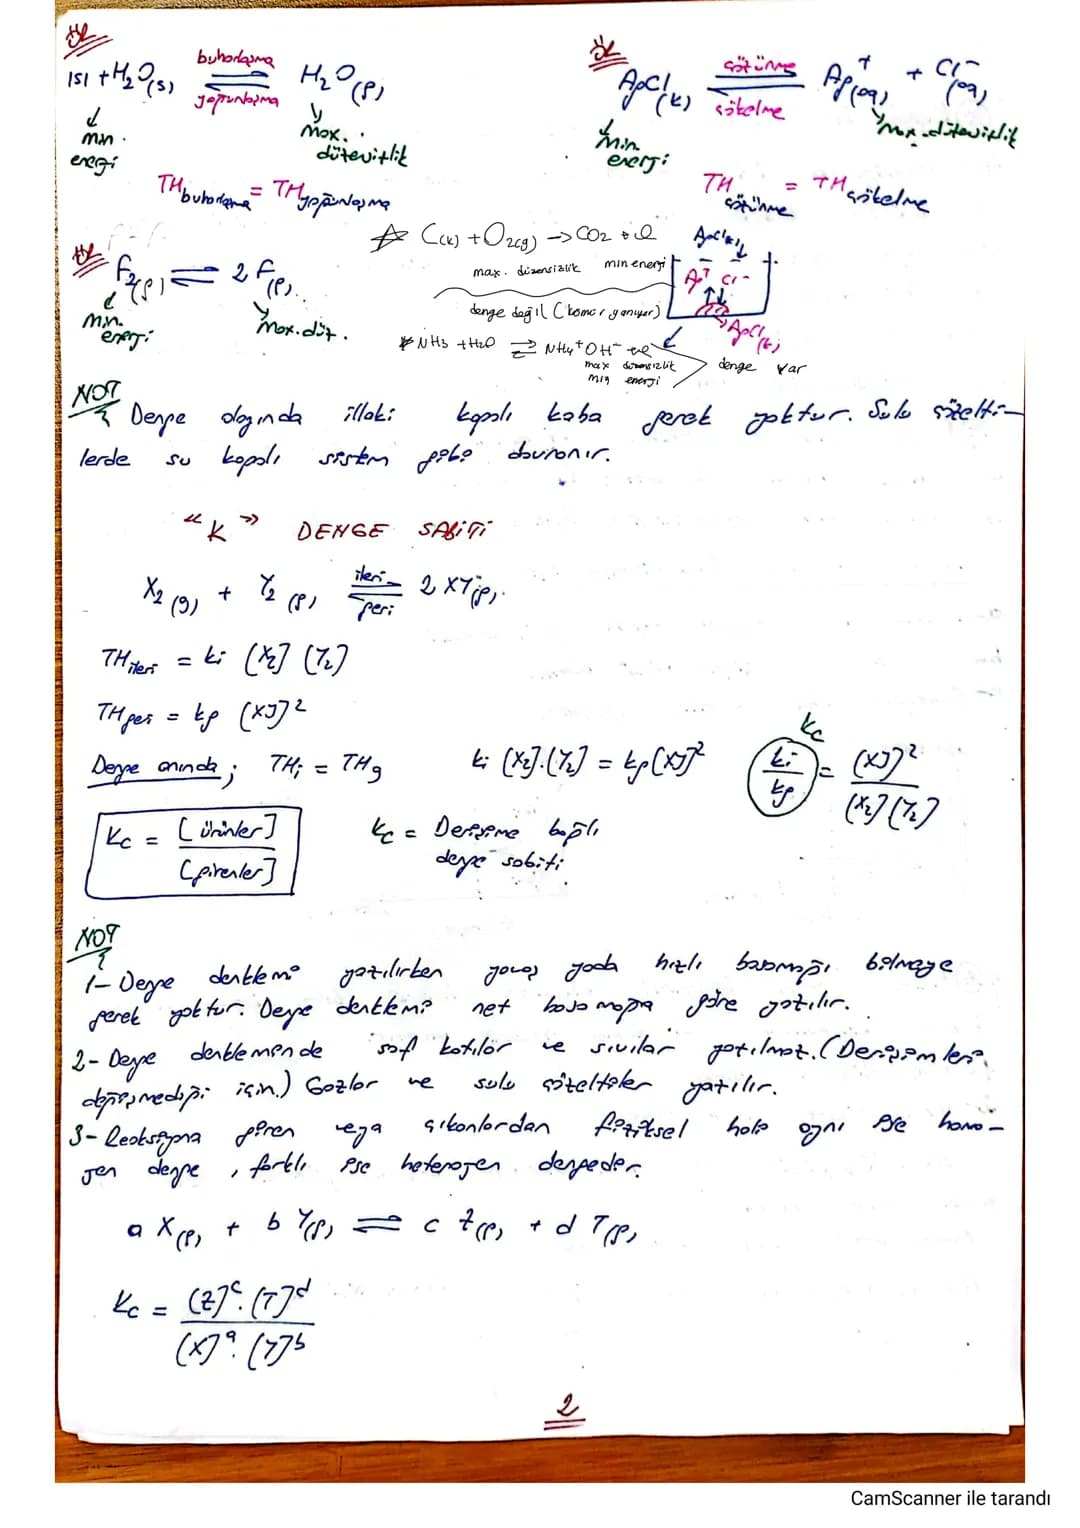 ÖR
ISI + H₂O(s) ⇌ H₂O(g)
buharlaşma
yoğunlaşma
min. enerji
Max. düzensizlik
TH buharlaşma = TH yoğunlaşma
ÖR
AgCl(k) ⇌ Ag⁺(aq) + Cl⁻(aq)
çözünme
çökelme
Min. enerji
Max. düzensizlik
TH çözünme = TH çökelme
ÖR
F₂(g) ⇌ 2F(g)
Min. enerji
Max. düz.
☆ C(k) + O₂(g) → CO₂ + ısı
max. düzensizlik min enerji
denge değil (kömür yanıyor)
* NH₃ + H₂O ⇌ NH₄⁺ OH⁻ + ısı
max düzensizlik
min enerji
denge var
AgCl(k)
Ag⁺ Cl⁻
AgCl(k)
NOT
Denge olayında illaki kapalı kaba gerek yoktur. Sulu çözelti-
lerde su kapalı sistem gibi davranır.
"K" DENGE SABİTİ
X₂(g) + Y₂(g) ⇌ 2XY(g)
ileri
geri
TH ileri = ki [X₂] [Y₂]
TH geri = kg [XY]²
Denge anında; THi = THg ki [X₂].[Y₂] = kg[XY]² ki/kg = [XY]²/[X₂][Y₂]
Kc
Kc = [ürünler]/[girenler]
Kc = Derişime bağlı
denge sabiti
NOT
1- Denge denklemi yazılırken yavaş yada hızlı basamağı bilmeye
gerek yoktur. Denge denklemi net basamağa göre yazılır.
2- Denge denkleminde saf katılar ve sıvılar yazılmaz. (Derişimleri
değişmediği için.) Gazlar ve sulu çözeltiler yazılır.
3- Reaksiyona giren veya çıkanlardan fiziksel hali aynı ise homo-
jen denge, farklı ise heterojen dengeder.
a X(g) + b Y(g) ⇌ c Z(g) + d T(g)
Kc = [Z]ᶜ.[T]ᵈ/[X]ᵃ.[Y]ᵇ
2
CamScanner ile tarandı